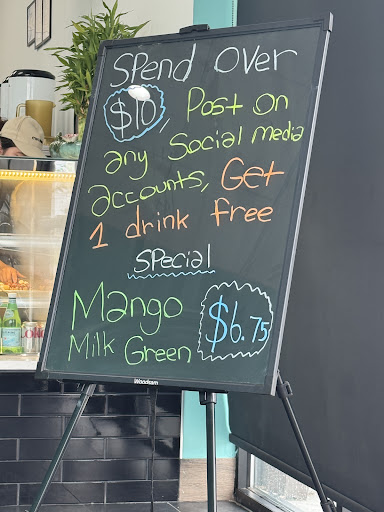 Spend Over
$10, Post on
any Social media
accounts, Get
1 drink free
Special
Mango
Milk Green
$6.75
Woodsam